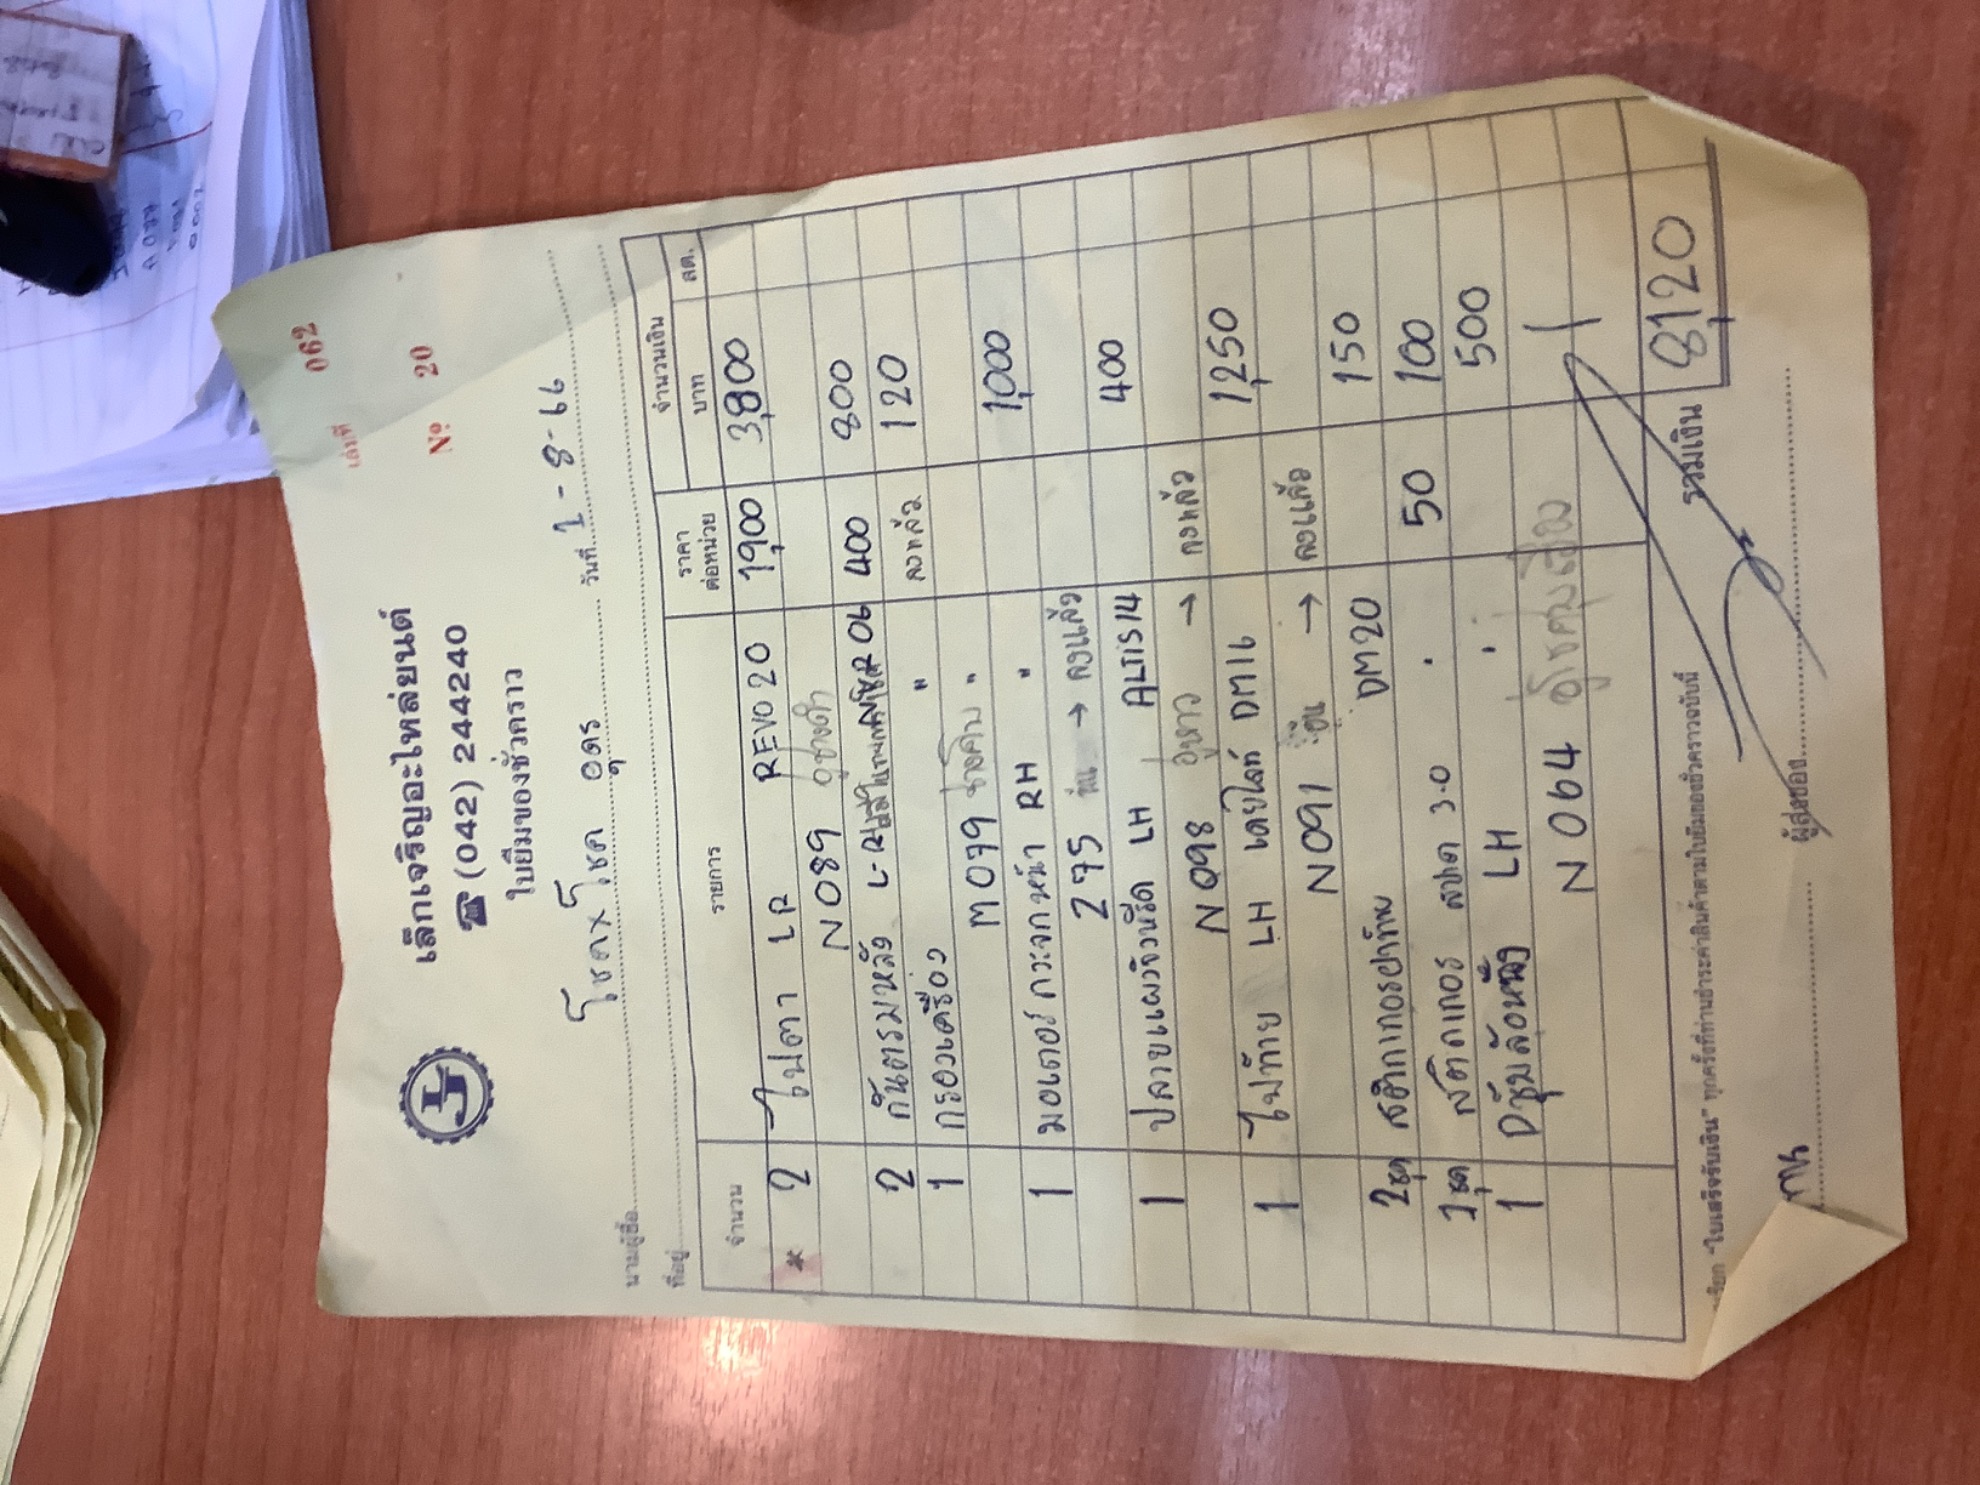 เล่มที่ 062
Nº 20
เล็กเจริญอะไหล่ยนต์
☎ (042) 244240
ใบยืมของชั่วคราว
นามผู้ซื้อ โชคxโชค อุดร วันที่ 1-8-66
ที่อยู่
จำนวน รายการ ราคาต่อหน่วย จำนวนเงิน บาท สต.
* 2 ไฟตา LR REVO 20 1,900 3,800
N 089 อู่ช่างดำ
2 กันตรมหลัง L-R 06 400 800
1 กรองเครื่อง " ลงแล้ว 120
M 079 ช่างคิม "
1 มอเตอร์กระจกหน้า RH " 1,000
275 → ลงแล้ว
1 ปลายแผงจังหรีด LH ALTIS 14 400
N 098 อู่หาว → ลงแล้ว
1 ไฟท้าย LH เดย์ไลท์ DM16 1,250
N 091 → ลงแล้ว
2 ชุด สติกเกอรฝาท้าย DM20 150
2 ชุด สติกเกอร 3.0 " 50 100
1 LH " 500
N 064
รวมเงิน 8,120
เรียก "ใบเสร็จรับเงิน" ทุกครั้งที่ท่านชำระค่าสินค้าตามใบยืมของชั่วคราวฉบับนี้
ผู้ส่งของ